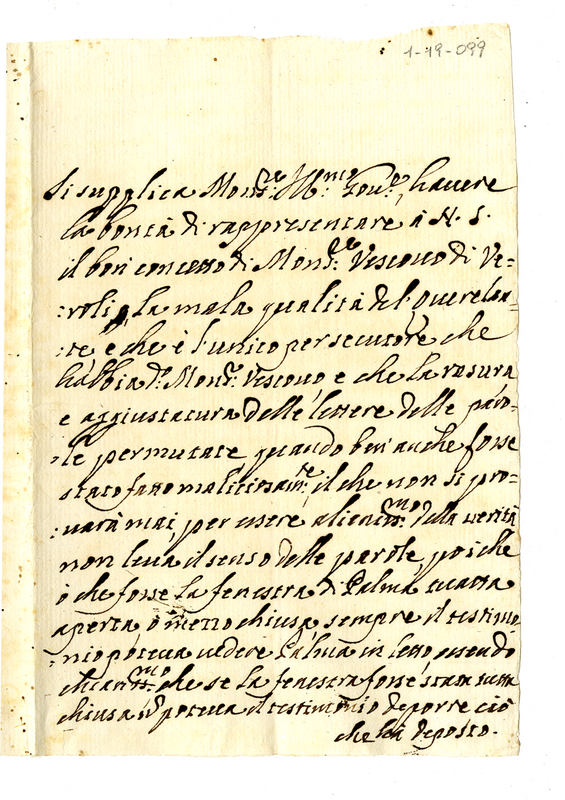 1-19-099
Si supplica Mons.re Ill.mo Gov.re, havere
la bontà di rappresentare à N. S.
il bon concetto di Mons.re Vescovo di Ve=
:roli, la mala qualità del Querelan-
:te, e che è l'unico persecutore che
habbia d.o Mons.re Vescovo e che la rasura
e aggiustatura delle lettere delle paro-
:le permutate quando ben anche fosse
stato fatto malitiosam.te, il che non si pro=
:varà mai, per essere alieniss.mo della verità
non leva il senso delle parole, poi che
ò che fosse la fenestra di Palma tutta
aperta, ò mezzo chiusa, sempre il testimo
:nio poteva vedere Palma in letto essendo
chiariss.mo che se la fenestra fosse stata tutta
chiusa poteva il testimonio deporre ciò
che hà deposto.